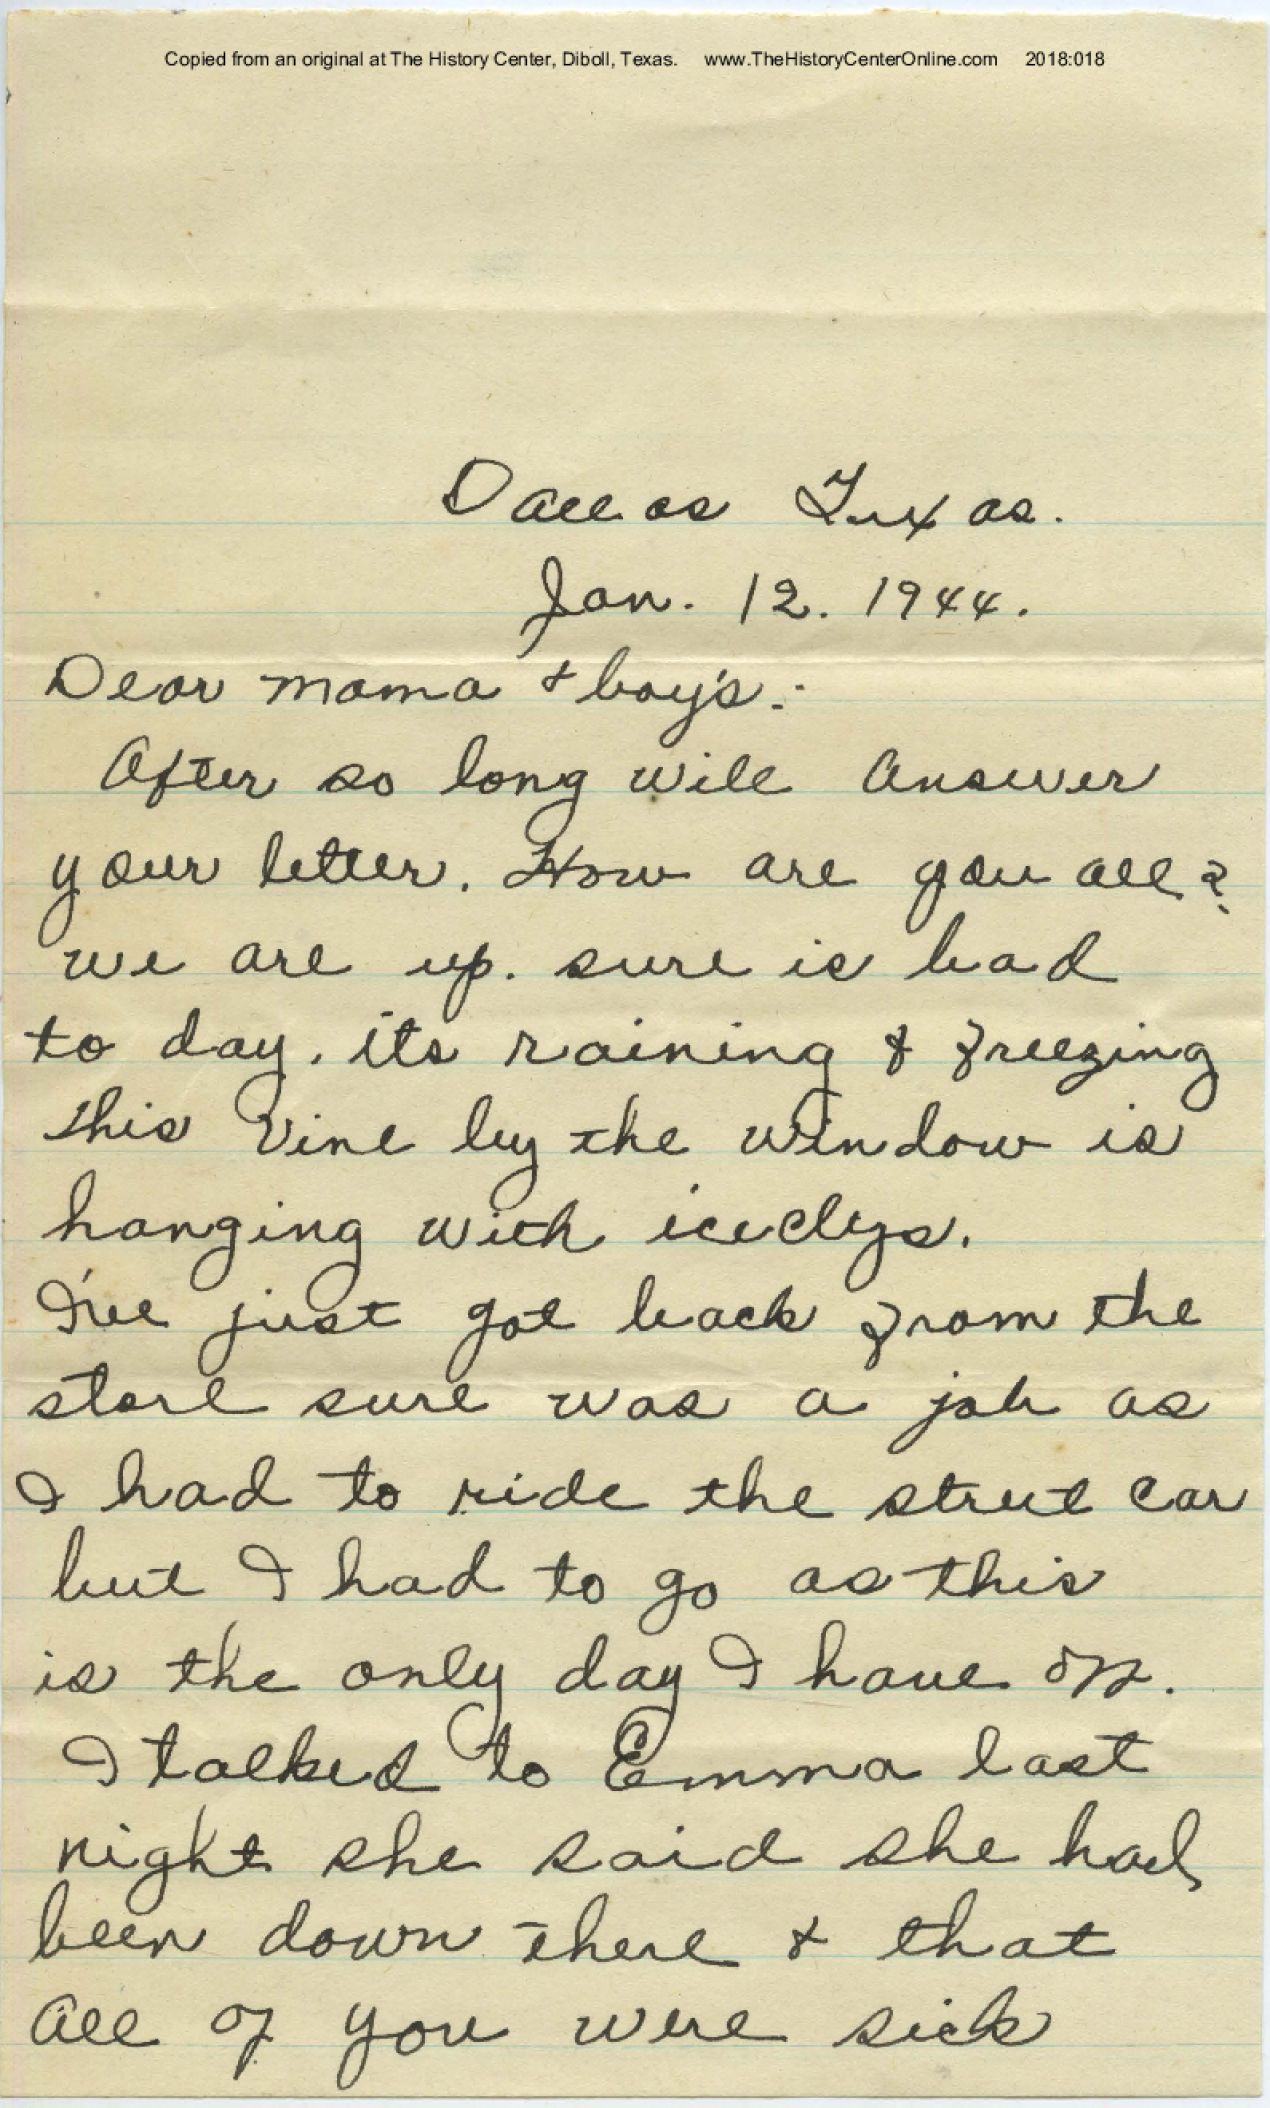 Copied from an original at The History Center, Diboll, Texas. www.TheHistoryCenterOnline.com 2018:018
Dallas Texas.
Jan. 12. 1944.
Dear mama + boy's:-
After so long will answer
your letter. How are you all?
we are up. sure is bad
to day. its raining & freezing
this vine by the window is
hanging with iceclys.
I've just got back from the
store sure was a job as
I had to ride the street car
but I had to go as this
is the only day I have off.
I talked to Emma last
night she said she had
been down there + that
all of you were sick